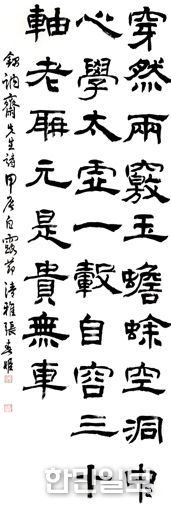 穿然兩竅玉蟾蜍空洞中
心學太虛一轂自容三十
軸老聃元是貴無車
先生詩甲辰白露節 清雅張春姬
한민일보